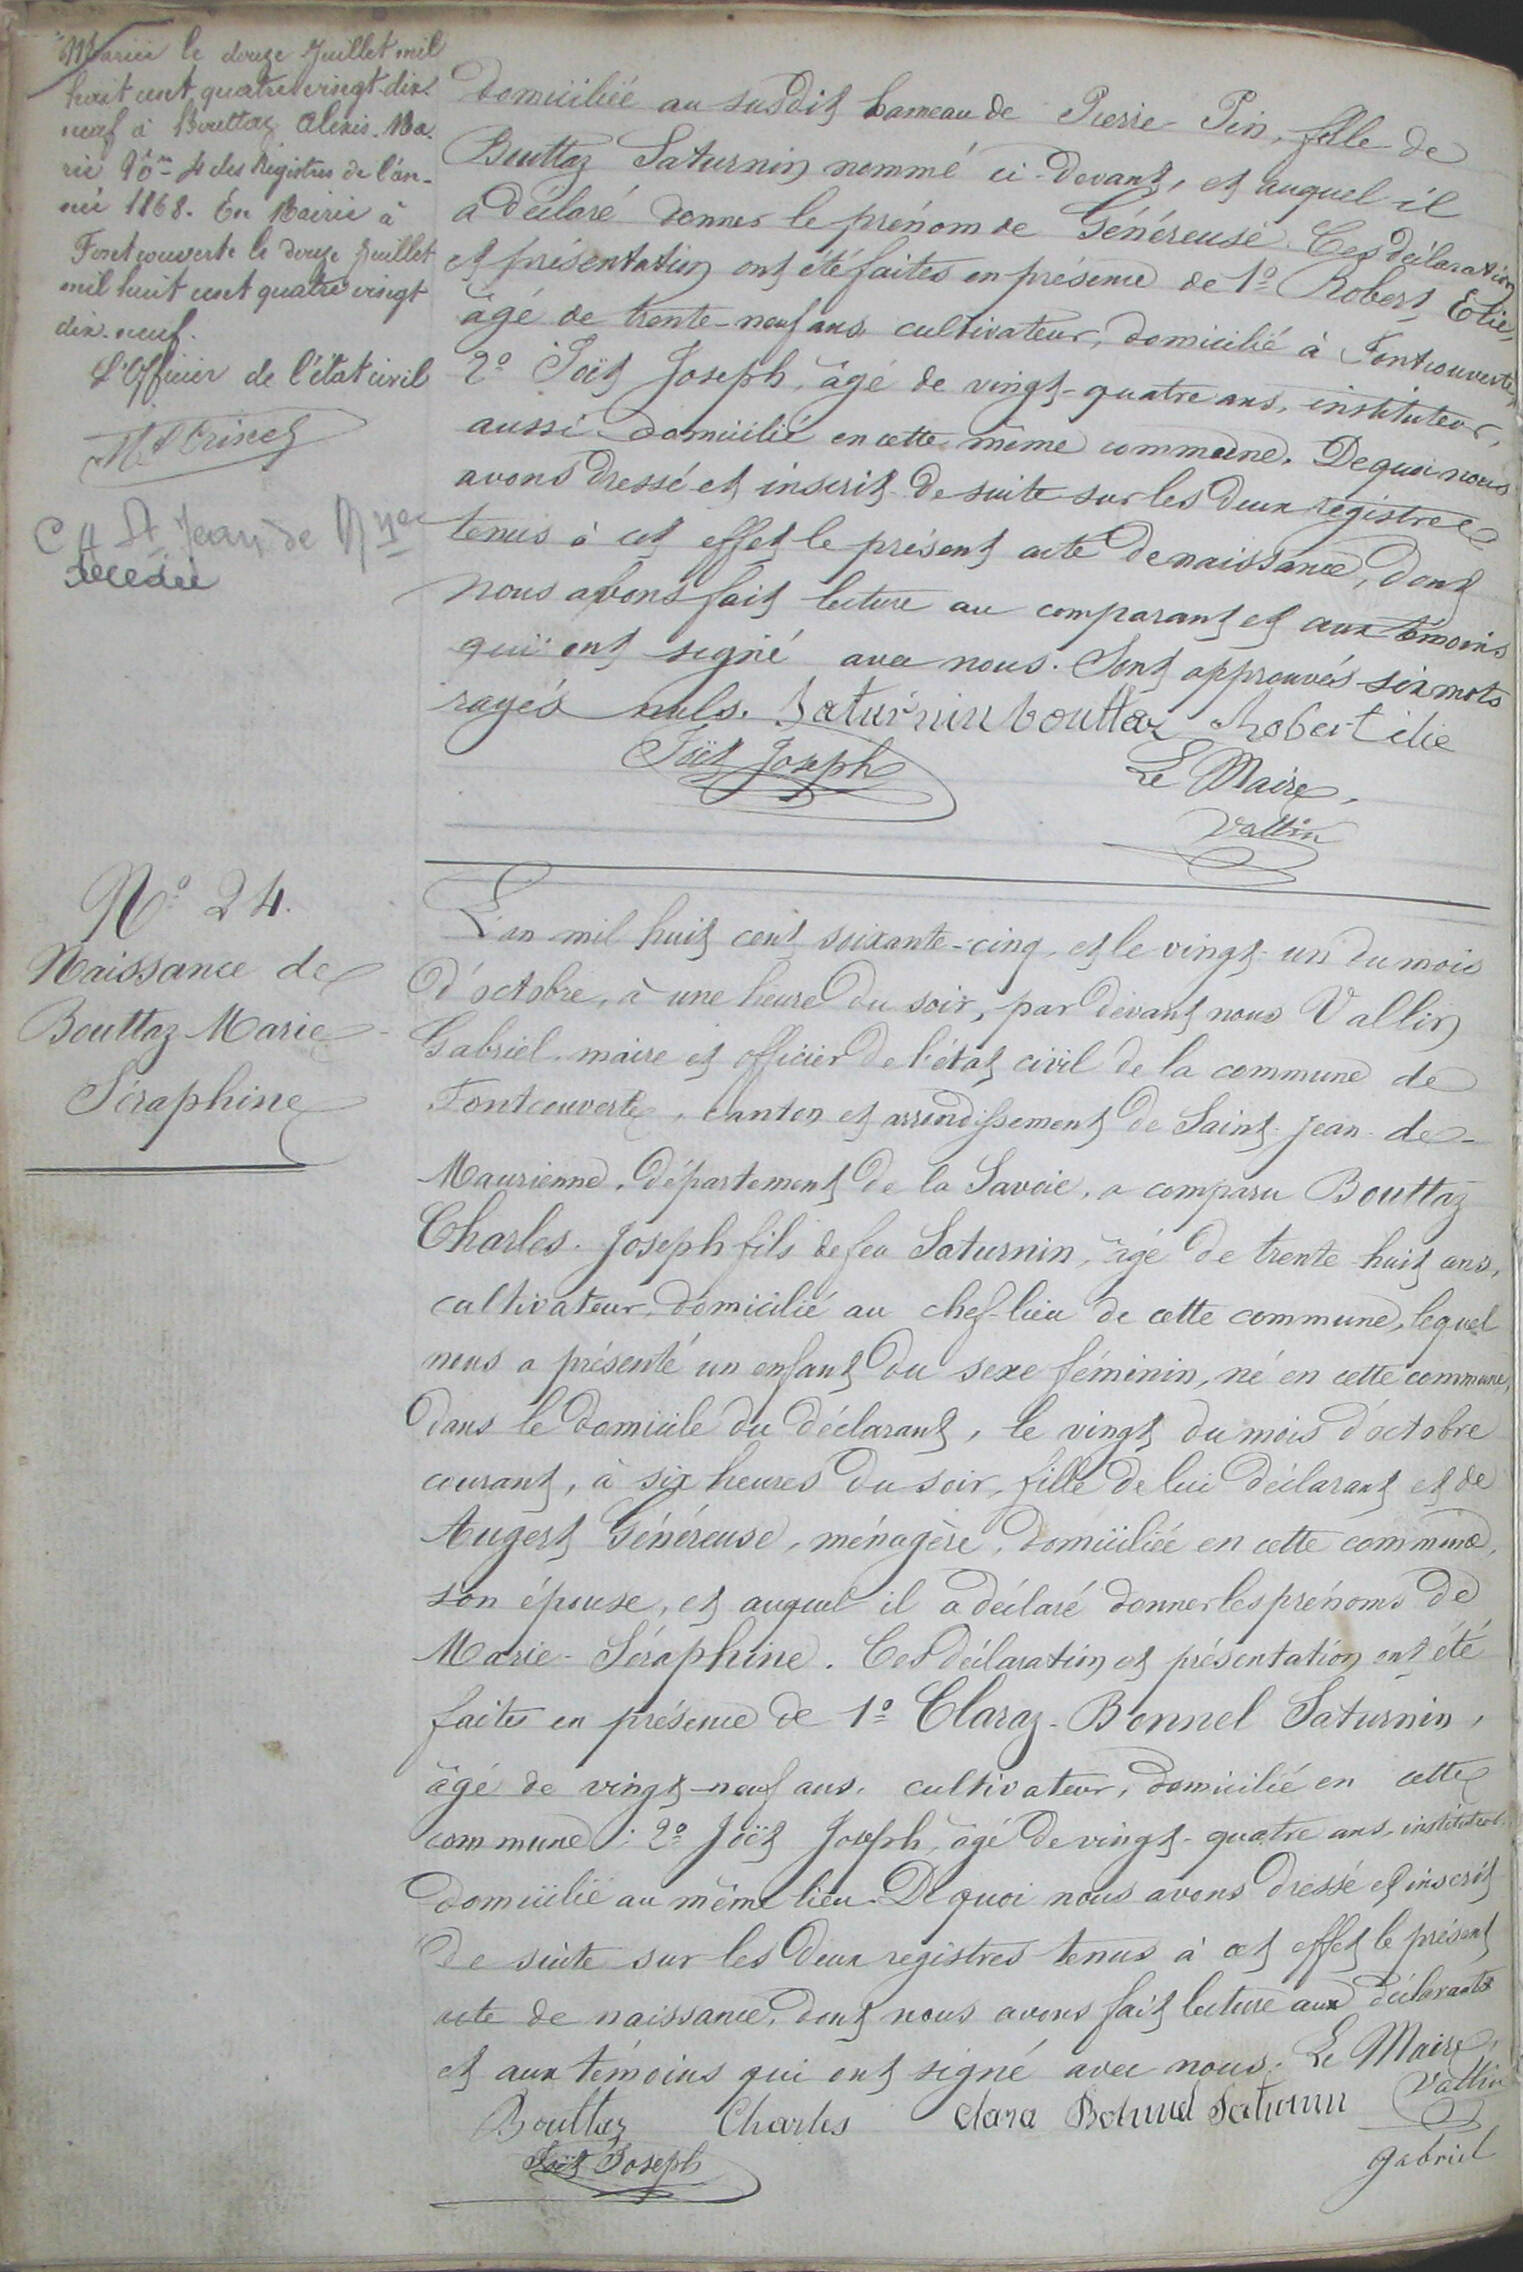 Mariée le douze Juillet mil
huit cent quatre vingt-dix
neuf à Bouttaz Alexis-Ma
rie No 4 des Registres de l'an-
née 1868. En Mairie à
Fontcouverte le douze Juillet
mil huit cent quatre vingt
dix-neuf.
L'Officier de l'état civil
St Jean de
décédée
domiciliée au susdit hameau de Pierre-Pin, fille de
Bouttaz Saturnin nommé ci-devant, et auquel il
a déclaré donner le prénom de Généreuse. Ces déclaration
et présentation ont été faites en présence de 1º Robert Elie,
âgé de trente-neuf ans cultivateur, domicilié à Fontcouverte,
2º Joët Joseph, âgé de vingt-quatre ans, instituteur,
aussi domicilié en cette même commune. De quoi nous
avons dressé et inscrit de suite sur les deux registres
tenus à cet effet le présent acte de naissance, dont
nous avons fait lecture au comparant et aux témoins
qui ont signé avec nous. Sont approuvés six mots
rayés nuls. Saturnin bouttaz Robert élie
Joët Joseph Le Maire,
Vallin
Nº 24.
Naissance de
Bouttaz Marie
Séraphine
L'an mil huit cent soixante-cinq, et le vingt-un du mois
d'octobre, à une heure du soir, par devant nous Vallin
Gabriel, maire et officier de l'état civil de la commune de
Fontcouverte, canton et arrondissement de Saint-Jean-de-
Maurienne, département de la Savoie, a comparu Bouttaz
Charles-Joseph fils de feu Saturnin, âgé de trente-huit ans,
cultivateur, domicilié au chef-lieu de cette commune, lequel
nous a présenté un enfant du sexe féminin, né en cette commune,
dans le domicile du déclarant, le vingt du mois d'octobre
courant, à six heures du soir, fille de lui déclarant et de
Augert Généreuse, ménagère, domiciliée en cette commune,
son épouse, et auquel il a déclaré donner les prénoms de
Marie-Séraphine. Ces déclaration et présentation ont été
faites en présence de 1º Claraz-Bonnel Saturnin,
âgé de vingt-neuf ans, cultivateur, domicilié en cette
commune; 2º Joët Joseph, âgé de vingt-quatre ans, instituteur,
domicilié au même lieu. De quoi nous avons dressé et inscrit
de suite sur les deux registres tenus à cet effet le présent
acte de naissance, dont nous avons fait lecture aux déclarants
et aux témoins qui ont signé avec nous. Le Maire,
Bouttaz Charles Clara Bonnel Saturnin Vallin
Joët Joseph gabriel